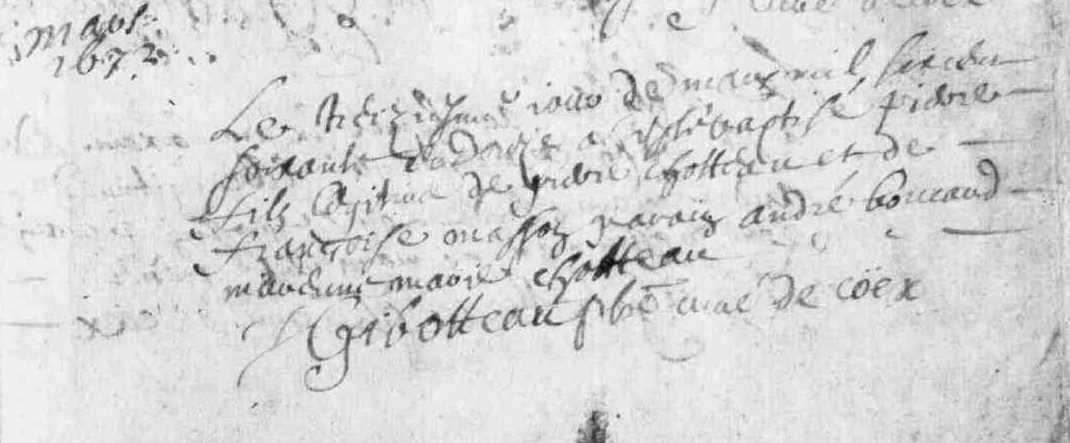 mars
1672
Le treiziesme jour de mars mil six cens
soixante et douze a esté baptisé pierre
fils legitime de pierre chotteau et de
françoise masson parain andré boucaud
maraine marie chotteau
Gibotteau pbre curé de coëx